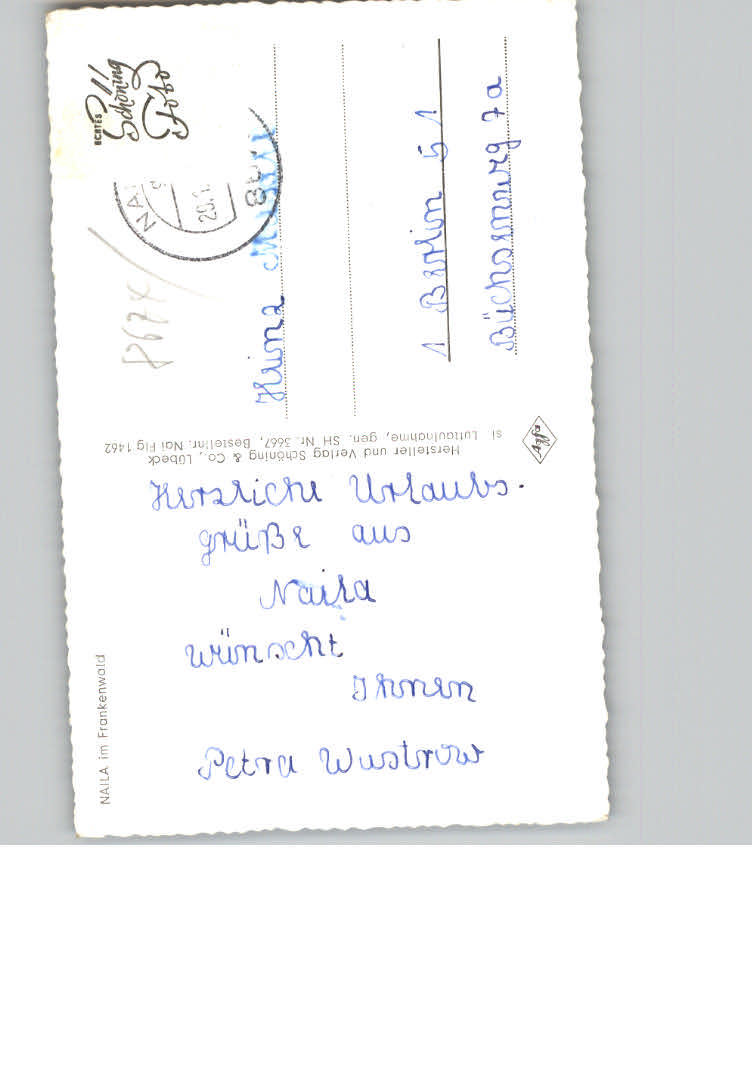 NAILA im Frankenwald
Herzliche Urlaubs-
grüße aus
Naila
wünscht
Ihnen
Petra Wustrow
Hersteller und Verlag Schöning & Co., Lübeck
si Luftaufnahme, gen. SH Nr. 3667, Bestellnr. Nai Flg 1462
Agfa
ECHTES
Schöning
Foto
NAI
20.1
867
8674
Heinz
1 Berlin 51
Büchsenweg 7a